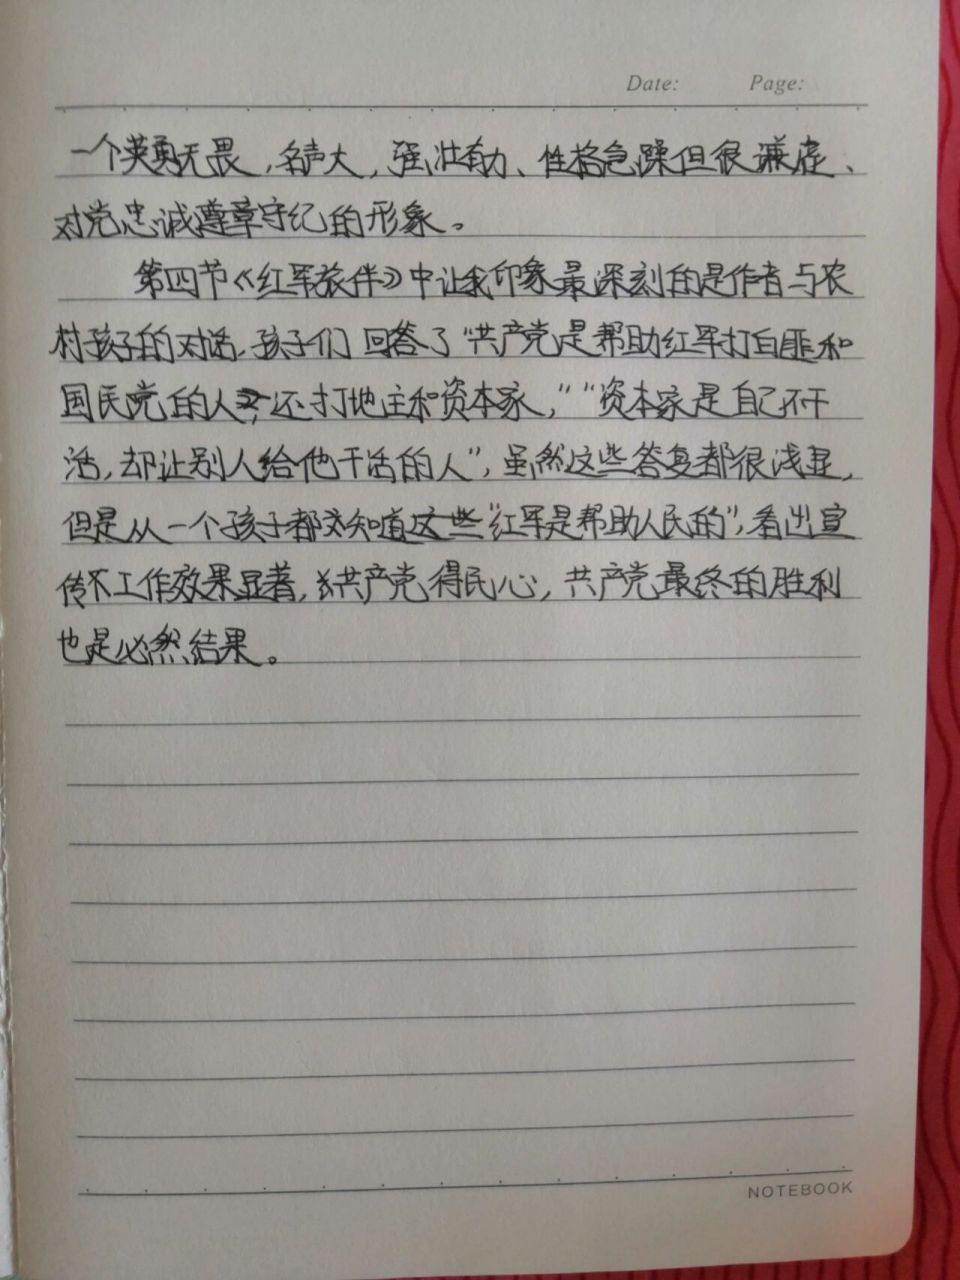 Date: Page:
一个英勇无畏，名声大，强壮有力、性格急躁但很谦虚、
对党忠诚遵章守纪的形象。
第四节《红军旅伴》中让我印象最深刻的是作者与农
村孩子的对话，孩子们回答了“共产党是帮助红军打白匪和
国民党的人，还打地主和资本家，”“资本家是自己不干
活，却让别人给他干活的人”，虽然这些答复都很浅显，
但是从一个孩子都知道这些“红军是帮助人民的”，看出宣
传工作效果显著，共产党得民心，共产党最终的胜利
也是必然结果。
NOTEBOOK